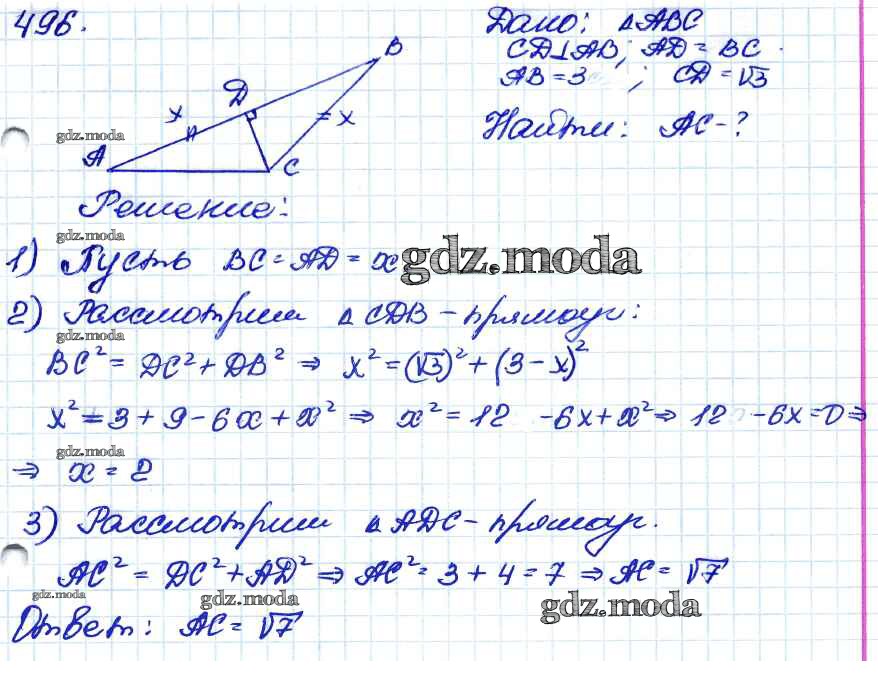 496.
Дано: △ABC
CD⊥AB; AD = BC
AB = 3 ; CD = √3
Найти: AC - ?
B
D
x
= x
A
C
gdz.moda
Решение:
gdz.moda
1) Пусть BC = AD = x
gdz.moda
2) Рассмотрим △CDB – прямоуг:
gdz.moda
BC² = DC² + DB² ⇒ x² = (√3)² + (3 - x)²
x² = 3 + 9 - 6x + x² ⇒ x² = 12 - 6x + x² ⇒ 12 - 6x = 0 ⇒
gdz.moda
⇒ x = 2
3) Рассмотрим △ADC – прямоуг.
AC² = DC² + AD² ⇒ AC² = 3 + 4 = 7 ⇒ AC = √7
gdz.moda
gdz.moda
gdz.moda
Ответ: AC = √7